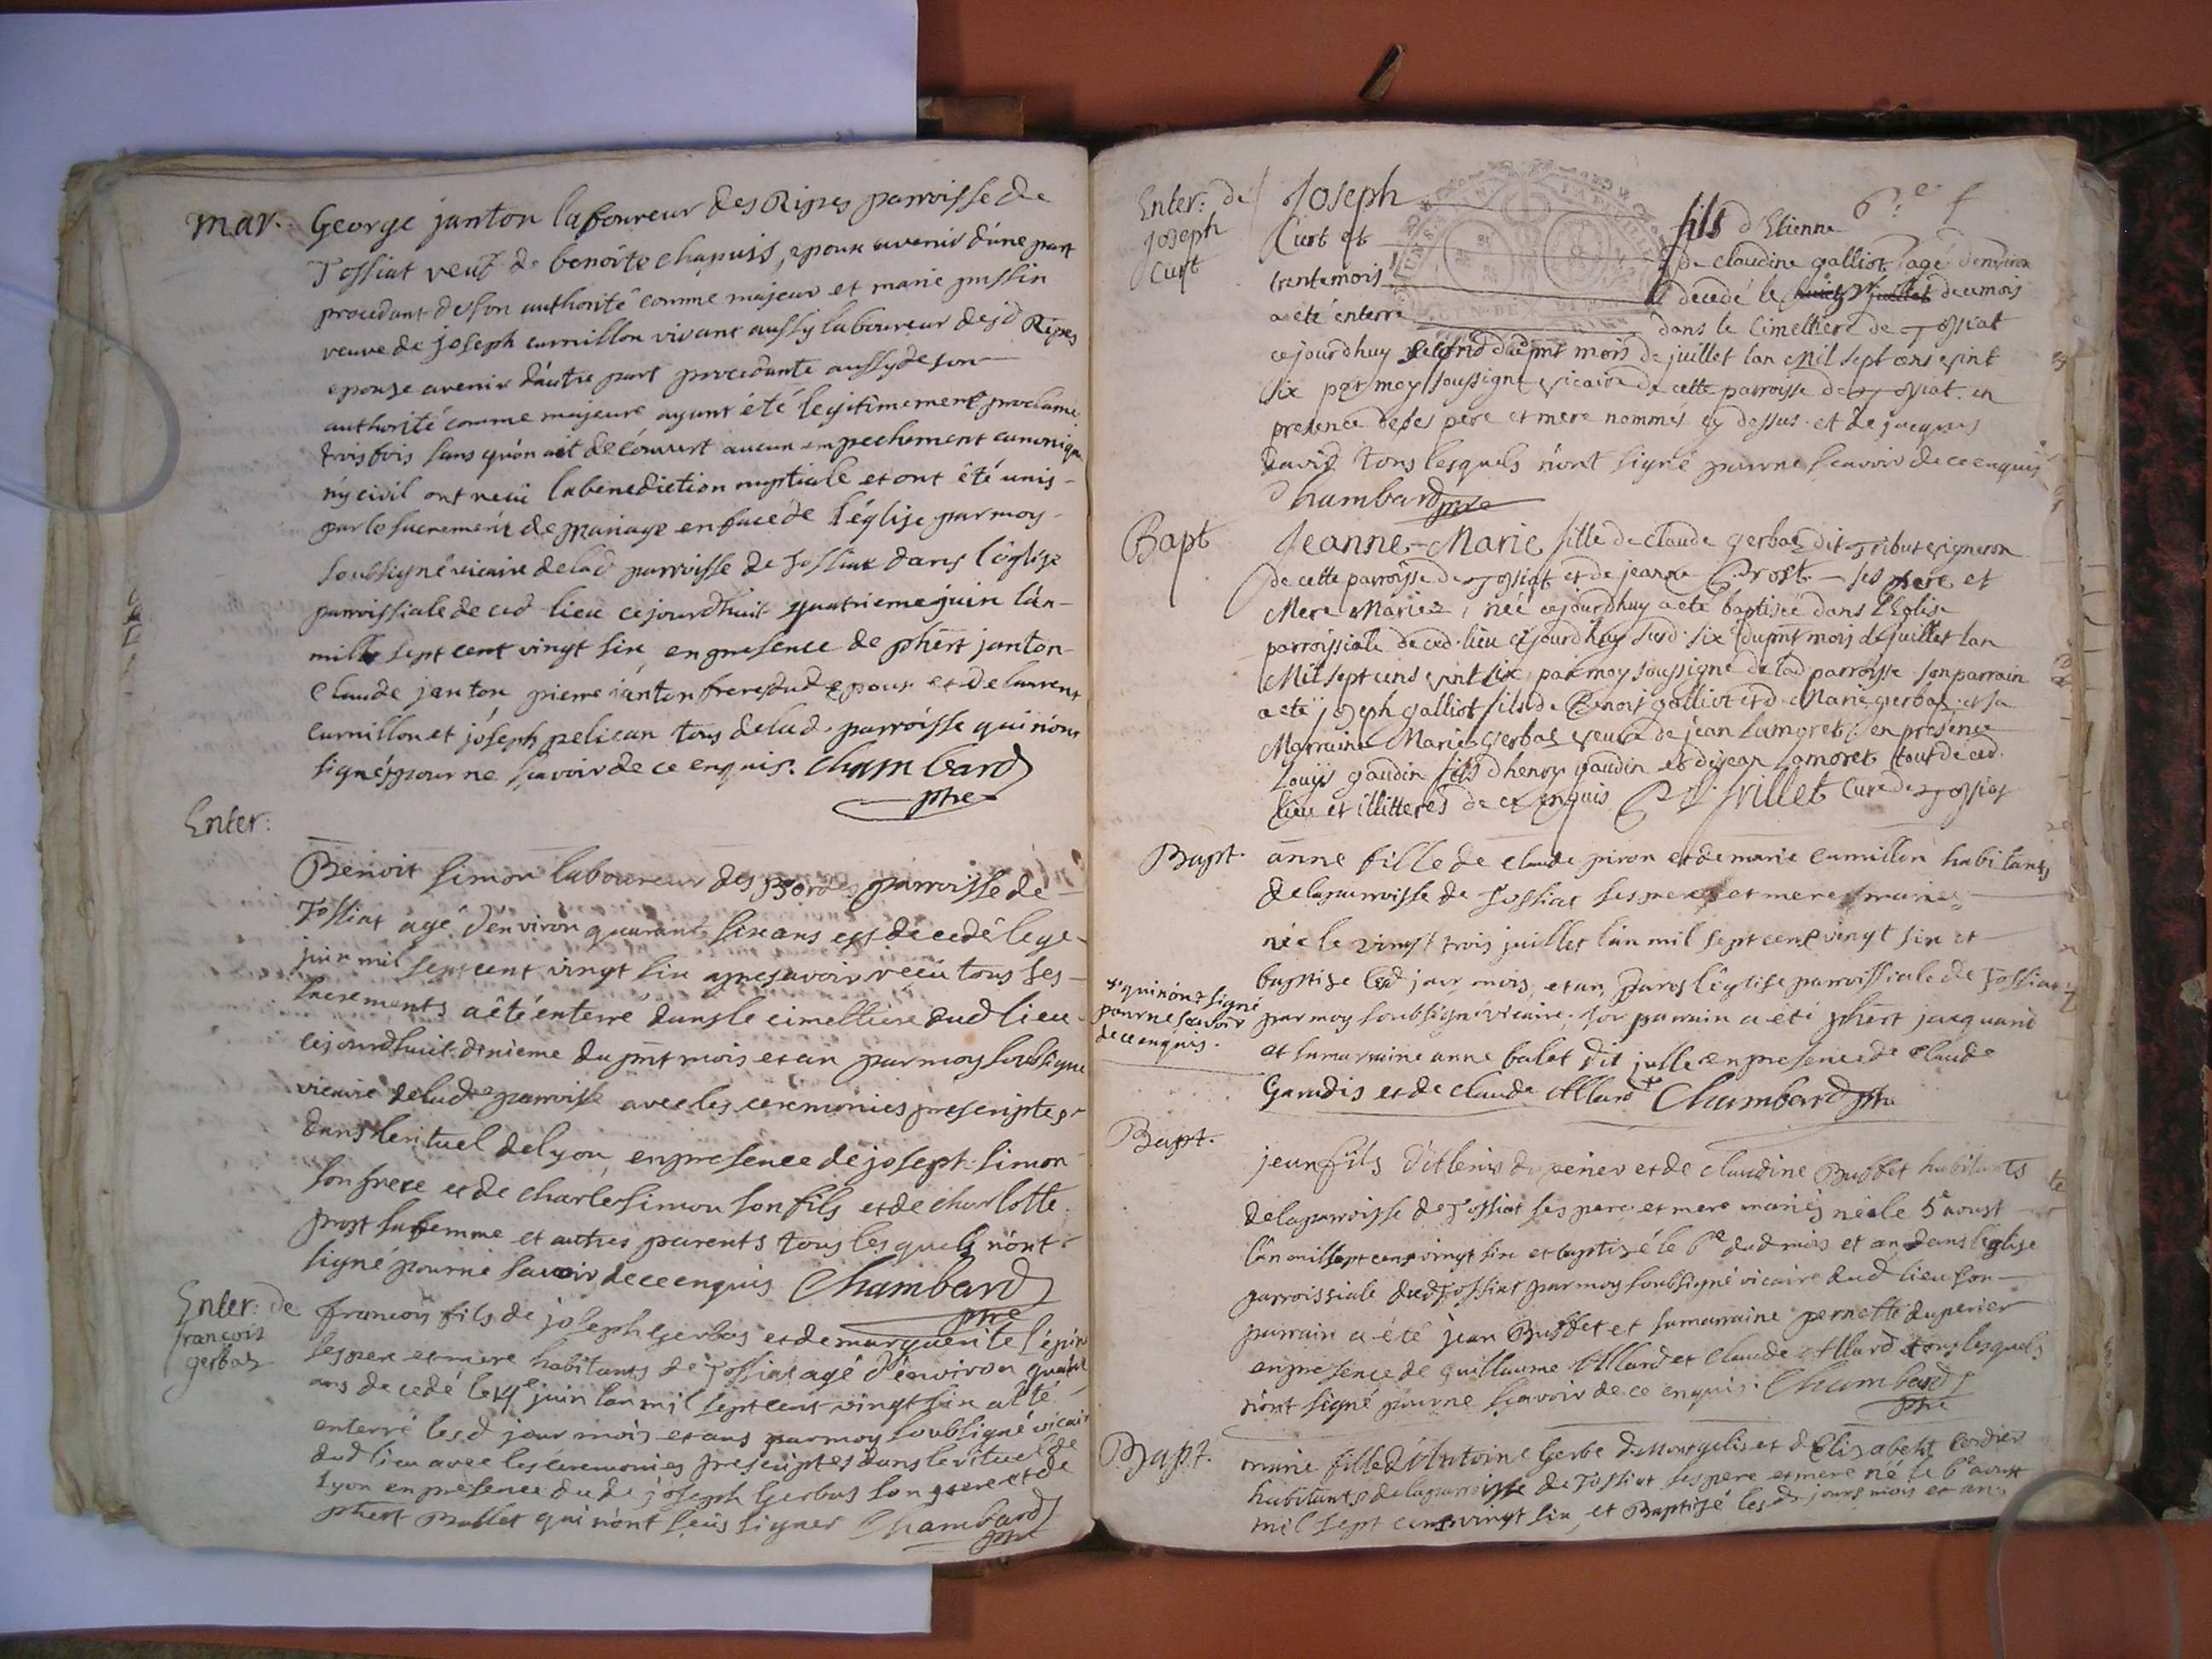 mar. George janton laboureur des Ripes parroisse de
Tossiat veuf de benoite chapuis, epoux avenir d'une part
procedant de son authorité comme majeur et marie pussin
veuve de joseph curnillon vivant aussy laboureur desd Ripes
epouse avenir d'autre part procedante aussy de son
authorité comme majeure ayant été legitimement proclamé
trois fois sans qu'on ait decouvert aucun empechement canonique
ny civil ont reçü la benediction nuptiale et ont été unis
par le sacrement de mariage en face de l'église par moy
soubsigné vicaire de lad parroisse de Tossiat dans l'église
parroissiale de ced lieu cejourdhuit quatrieme juin l'an
mille sept cent vingt six, en presence de phērt janton
Claude janton, pierre janton freres dud epoux et de laurent
curnillon et joseph pelican tous de lad. parroisse qui n'ont
signés pour ne sçavoir de ce enquis. Chambard
ptre
Enter:
Benoit simon laboureur des Bordes parroisse de
Tossiat agé d'environ quarante six ans est decedé le 9e
juin mil sept cent vingt six apres avoir reçü tous ses
sacrements a été enterré dans le cimettiere dud lieu
cejourdhuit dixieme du pnt mois et an par moy soubsigné
vicaire de lad parroisse avec les ceremonies prescriptes
dans le rituel de lyon, en presence de joseph simon
son frere et de charle simon son fils et de charlotte
prost sa femme et autres parents tous lesquels n'ont
signé pour ne savoir de ce enquis Chambard
ptre
Enter: de
francois
gerbaz
francois fils de joseph Gerbas et de marguerite l'épin
ses pere et mere habitants de Tossiat agé d'environ quatre
ans decedé le 14e juin l'an mil sept cent vingt six a eté
enterré lesd jour mois et ans par moy soubsigné vicaire
dud lieu avec les ceremonies prescriptes dans le rituel de
Lyon en presence dud joseph Gerbas son pere et de
phert Bullet qui n'ont sçüs signer Chambard
ptre
6e f
Enter: de
joseph
Curt
Joseph fils d'Etienne
Curt et de claudine galliot, agé d'environ
trente mois decedé le huict juillet de ce mois
a été enterré dans le Cimettiere de Tossiat
cejourdhuy second du pnt mois de juillet lan Mil sept cens vint
six par moy soussigné vicaire de cette parroisse de Tossiat en
presence de ses pere et mere nommés cy dessus et de jacques
David tous lesquels n'ont signé pour ne scavoir de ce enquis
Chambard ptre
Bapt
Jeanne-Marie fille de claude gerbaz dit Tribut vigneron
de cette parroisse de Tossiat et de jeanne Prost ses pere et
Mere Mariez, née cejourdhuy a eté baptisée dans l'Eglise
parroissiale de ced. lieu cejourdhuy susd. six du pnt mois de juillet lan
Mil sept cens vint six, par moy soussigné de lad parroisse son parrain
a eté joseph galliot fils de Benoist galliot et de Marie gerbaz et sa
Marraine Marie gerbaz veuve de jean Lamoret; en presence
Louys gaudin fils d'henry gaudin et de jean Lamoret tout de ced.
lieu et illitteres de ce enquis Curé de Tossiat
Bapt.
anne fille de claude piron et de marie curnillon habitants
de la parroisse de Tossiat ses pere et mere mariez
née le vingt trois juillet l'an mil sept cent vingt six et
baptize lesd jour mois, et an, dans l'église parroissiale de Tossiat
par moy soubsigné vicaire, son parrain a eté phērt jacquand
et sa marraine anne balet dit julle en presence de Claude
Garadis et de claude Allard + Chambard ptre
+ qui n'ont signé
pour ne scavoir
de ce enquis.
Bapt.
jean fils d'etienne duperier et de claudine Buffet habitants
de la parroisse de Tossiat ses pere et mere mariés né le 5e aoust
l'an mil sept cent vingt six et baptizé le 6e dud mois et an dans l'eglise
parroissiale dud Tossiat par moy soubsigné vicaire dud lieu son
parrain a été jean Buffet et sa marraine pernette duperier
en presence de guillaume Allard et claude Allard tous lesquels
n'ont signé pour ne scavoir de ce enquis. Chambard
ptre
Bapt.
marie fille d'Antoine Gerbe de Montgelis et d'Elizabeth cordier
habitants de la parroisse de Tossiat ses pere et mere né le 6e aoust
mil sept cens vingt six, et Baptizé lesd jours mois et an,